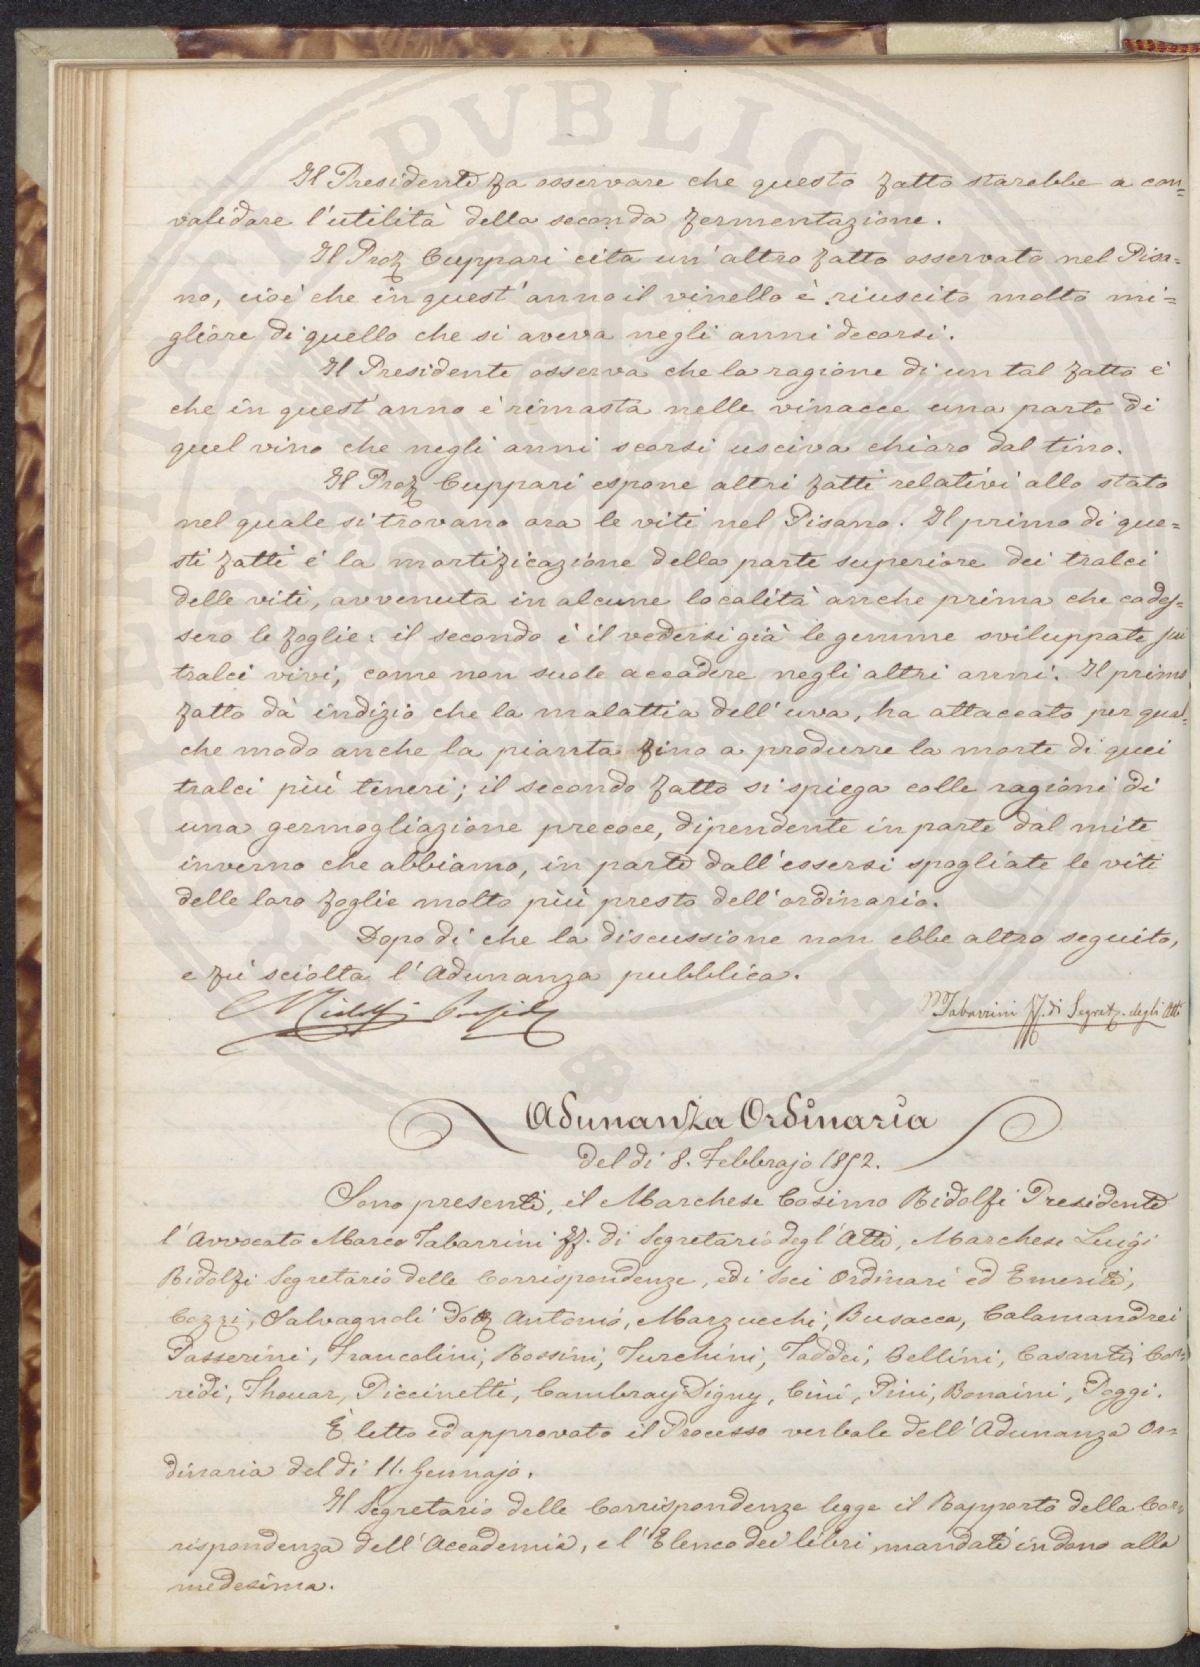 Il Presidente fa osservare che questo fatto starebbe a con=
validare l'utilità della seconda fermentazione.
Il Prof. Cuppari cita un'altro fatto osservato nel Pisa=
no, cioè che in quest'anno il vinello è riuscito molto mi=
gliore di quello che si aveva negli anni decorsi.
Il Presidente osserva che la ragione di un tal fatto è
che in quest'anno è rimasta nelle vinacce una parte di
quel vino che negli anni scorsi usciva chiaro dal tino.
Il Prof. Cuppari espone altri fatti relativi allo stato
nel quale si trovano ora le viti nel Pisano. Il primo di que=
sti fatti è la mortificazione della parte superiore dei tralci
delle viti, avvenuta in alcune località anche prima che cades=
sero le foglie: il secondo è il vedersi già le gemme sviluppate sui
tralci vivi, come non suole accadere negli altri anni. Il primo
fatto dà indizio che la malattia dell'uva, ha attaccato per qual=
che modo anche la pianta fino a produrre la morte di quei
tralci più teneri; il secondo fatto si spiega colle ragioni di
una germogliazione precoce, dipendente in parte dal mite
inverno che abbiamo, in parte dall'essersi spogliate le viti
delle loro foglie molto più presto dell'ordinario.
Dopo di che la discussione non ebbe altro seguito,
e fu sciolta l'Adunanza pubblica.
C Ridolfi Presid.
M Tabarrini ff. di Segret. degli Atti
Adunanza Ordinaria
del dì 8. Febbrajo 1852.
Sono presenti, il Marchese Cosimo Ridolfi Presidente
l'Avvocato Marco Tabarrini ff. di Segretario degl'Atti, Marchese Luigi
Ridolfi Segretario delle Corrispondenze, ed i Soci Ordinari ed Emeriti,
Cozzi, Salvagnoli Dott. Antonio, Marzucchi, Busacca, Calamandrei
Passerini, Francolini, Rossini, Turchini, Taddei, Cellini, Casanti, Cor=
ridi, Thouar, Piccinetti, Cambray Digny, Cini, Pini, Bonaini, Poggi.
È letto ed approvato il Processo verbale dell'Adunanza Or=
dinaria del dì 11. Gennajo.
Il Segretario delle Corrispondenze legge il Rapporto della Cor=
rispondenza dell'Accademia, e l'Elenco dei libri mandati in dono alla
medesima.